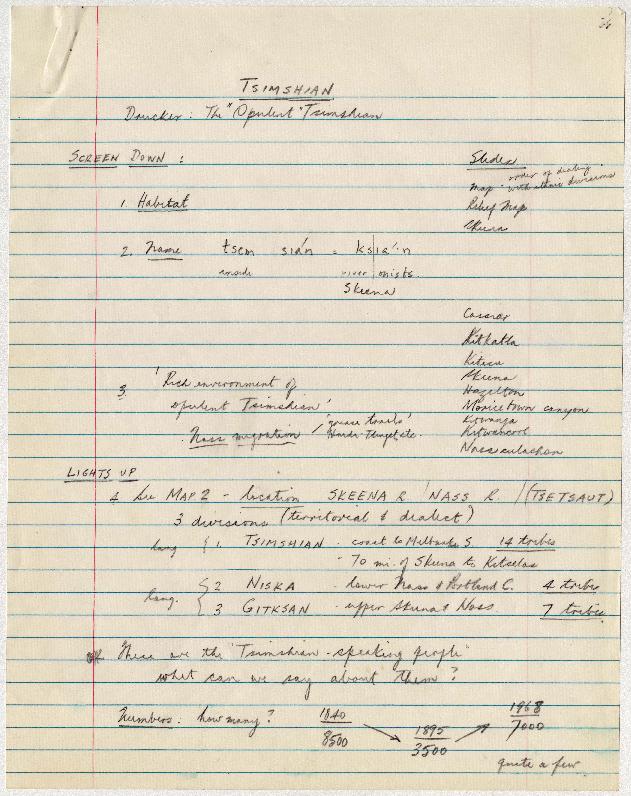 36
TSIMSHIAN
Drucker: The "Opulent" Tsimshian
SCREEN DOWN :
Slides
order of dealing
Map - with ethnic divisions
1. Habitat
Relief Map
Skeena
2. Name tsem sián = ksia'n
inside river
Skeena
Cassiar
Kitkatla
Skeena
3. 'Rich environment of
Hazelton
opulent Tsimshian'
Moricetown canyon
Kitwanga
Nass migration / 'grease trails'
Kitwancool
Nass eulachon
LIGHTS UP
4 See MAP 2 - location SKEENA R / NASS R. / (TSETSAUT)
3 divisions (territorial & dialect)
lang { 1. TSIMSHIAN - coast to Milbanke S. 14 tribes
- 70 mi. of Skeena to Kitselas
lang. { 2 NISKA - lower Nass & Portland C. 4 tribes
3 GITKSAN - upper Skeena & Nass. 7 tribes
These are the "Tsimshian-speaking people"
what can we say about them?
Numbers: how many? 1840 8500 1895 3500 1968 7000
quite a few